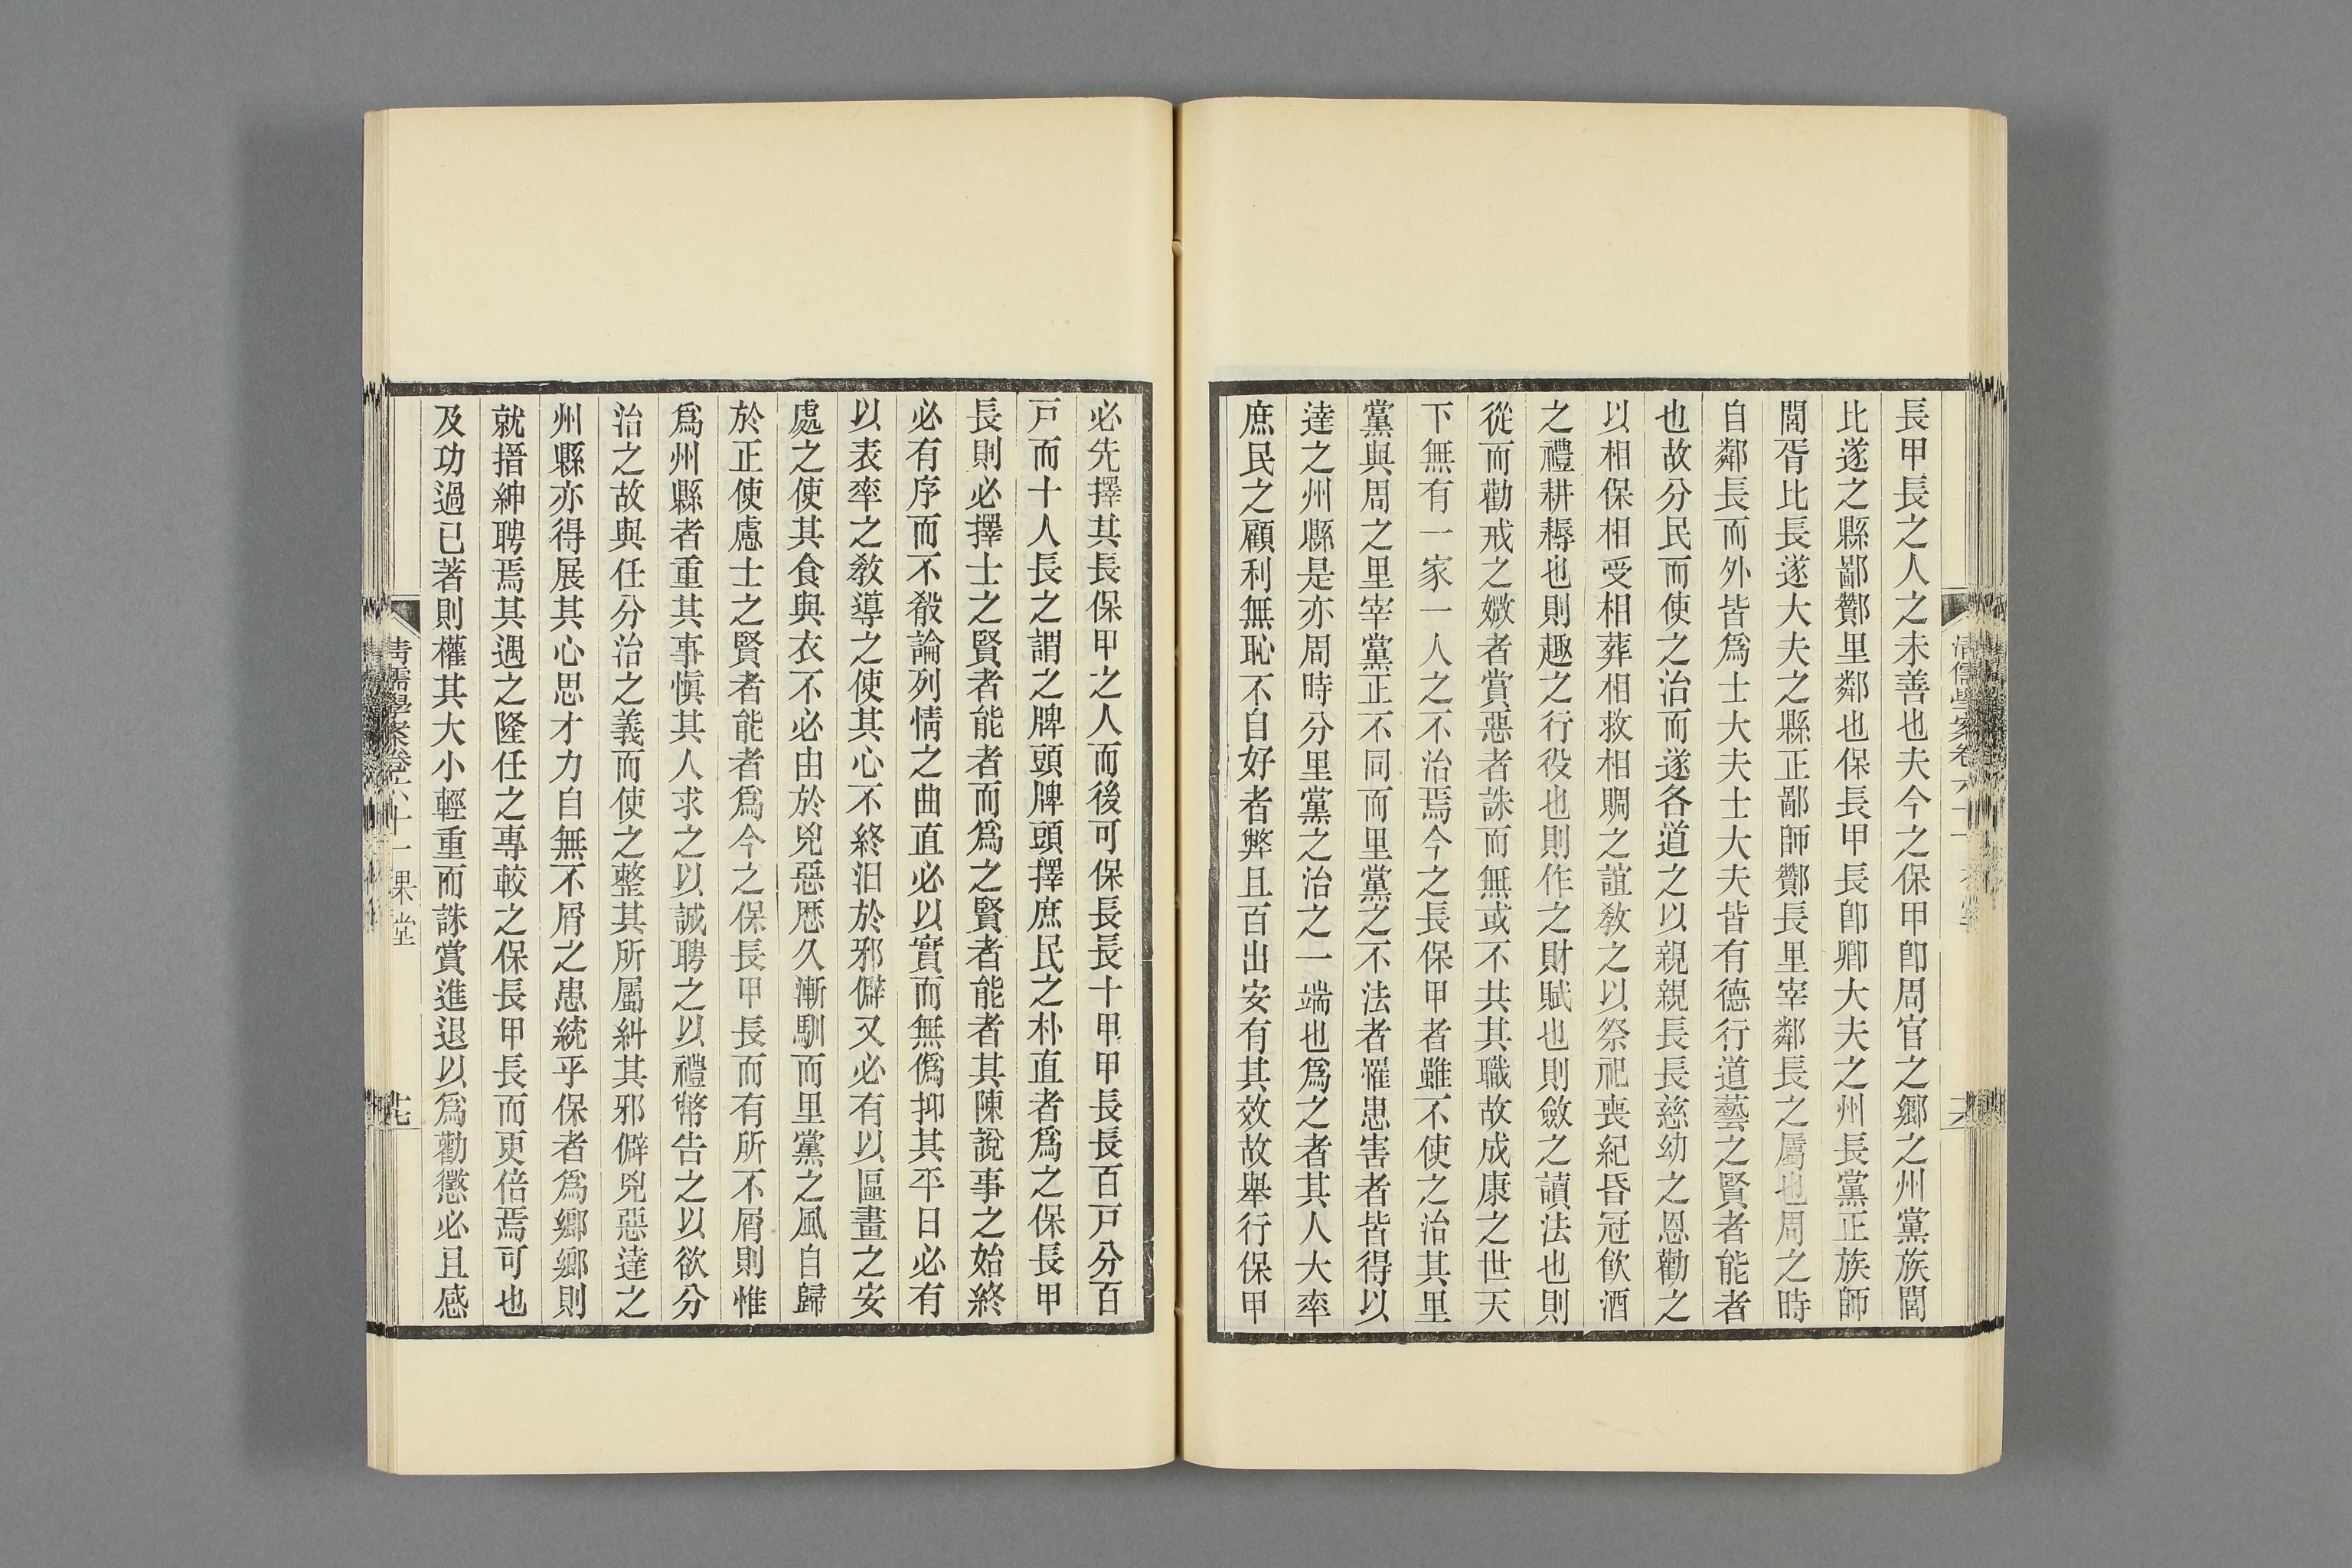 長甲長之人之未善也夫今之保甲卽周官之鄕之州黨族閭
比遂之縣鄙酇里鄰也保長甲長卽鄕大夫之州長黨正族師
閭胥比長遂大夫之縣正鄙師酇長里宰鄰長之屬也周之時
自鄰長而外皆爲士大夫士大夫皆有德行道藝之賢者能者
也故分民而使之治而遂各道之以親親長長慈幼之恩勸之
以相保相受相葬相救相賙之誼敎之以祭祀喪紀昏冠飮酒
之禮耕耨也則趣之行役也則作之財賦也則斂之讀法也則
從而勸戒之媺者賞惡者誅而無或不共其職故成康之世天
下無有一家一人之不治焉今之長保甲者雖不使之治其里
黨與周之里宰黨正不同而里黨之不法者罹患害者皆得以
達之州縣是亦周時分里黨之治之一端也爲之者其人大率
庶民之顧利無恥不自好者弊且百出安有其效故舉行保甲
清儒學案卷六十一
必先擇其長保甲之人而後可保長長十甲甲長長百戸分百
戸而十人長之謂之牌頭牌頭擇庶民之朴直者爲之保長甲
長則必擇士之賢者能者而爲之賢者能者其陳說事之始終
必有序而不殽論列情之曲直必以實而無僞抑其平日必有
以表率之敎導之使其心不終汨於邪僻又必有以區畫之安
處之使其食與衣不必由於兇惡歷久漸馴而里黨之風自歸
於正使慮士之賢者能者爲今之保長甲長而有所不屑則惟
爲州縣者重其事愼其人求之以誠聘之以禮幣告之以欲分
治之故與任分治之義而使之整其所屬糾其邪僻兇惡達之
州縣亦得展其心思才力自無不屑之患統乎保者爲鄕鄕則
就搢紳聘焉其遇之隆任之專較之保長甲長而更倍焉可也
及功過已著則權其大小輕重而誅賞進退以爲勸懲必且感
清儒學案卷六十一 果堂